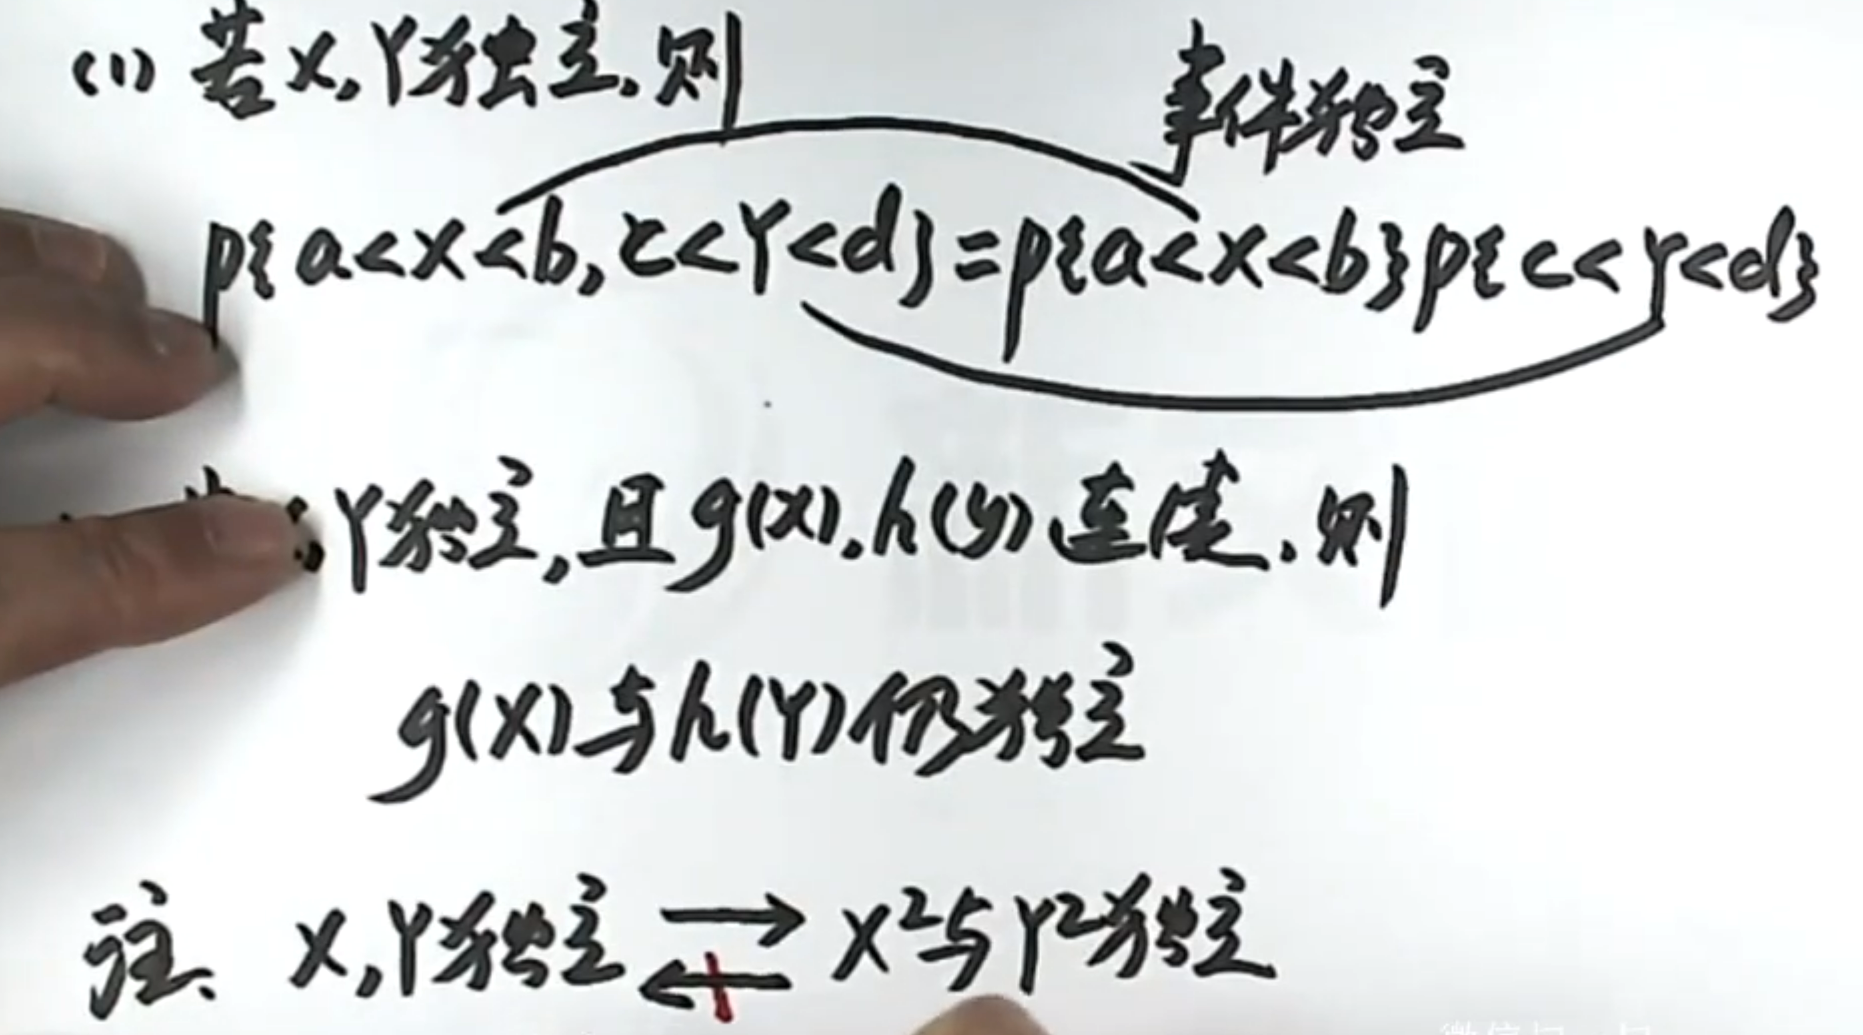 (1) 若X,Y独立,则
事件独立
P{a<X<b,c<Y<d}=P{a<X<b}P{c<Y<d}
Y独立,且g(x),h(y)连续,则
g(X)与h(Y)仍独立
注、X,Y独立 → X²与Y²独立
←